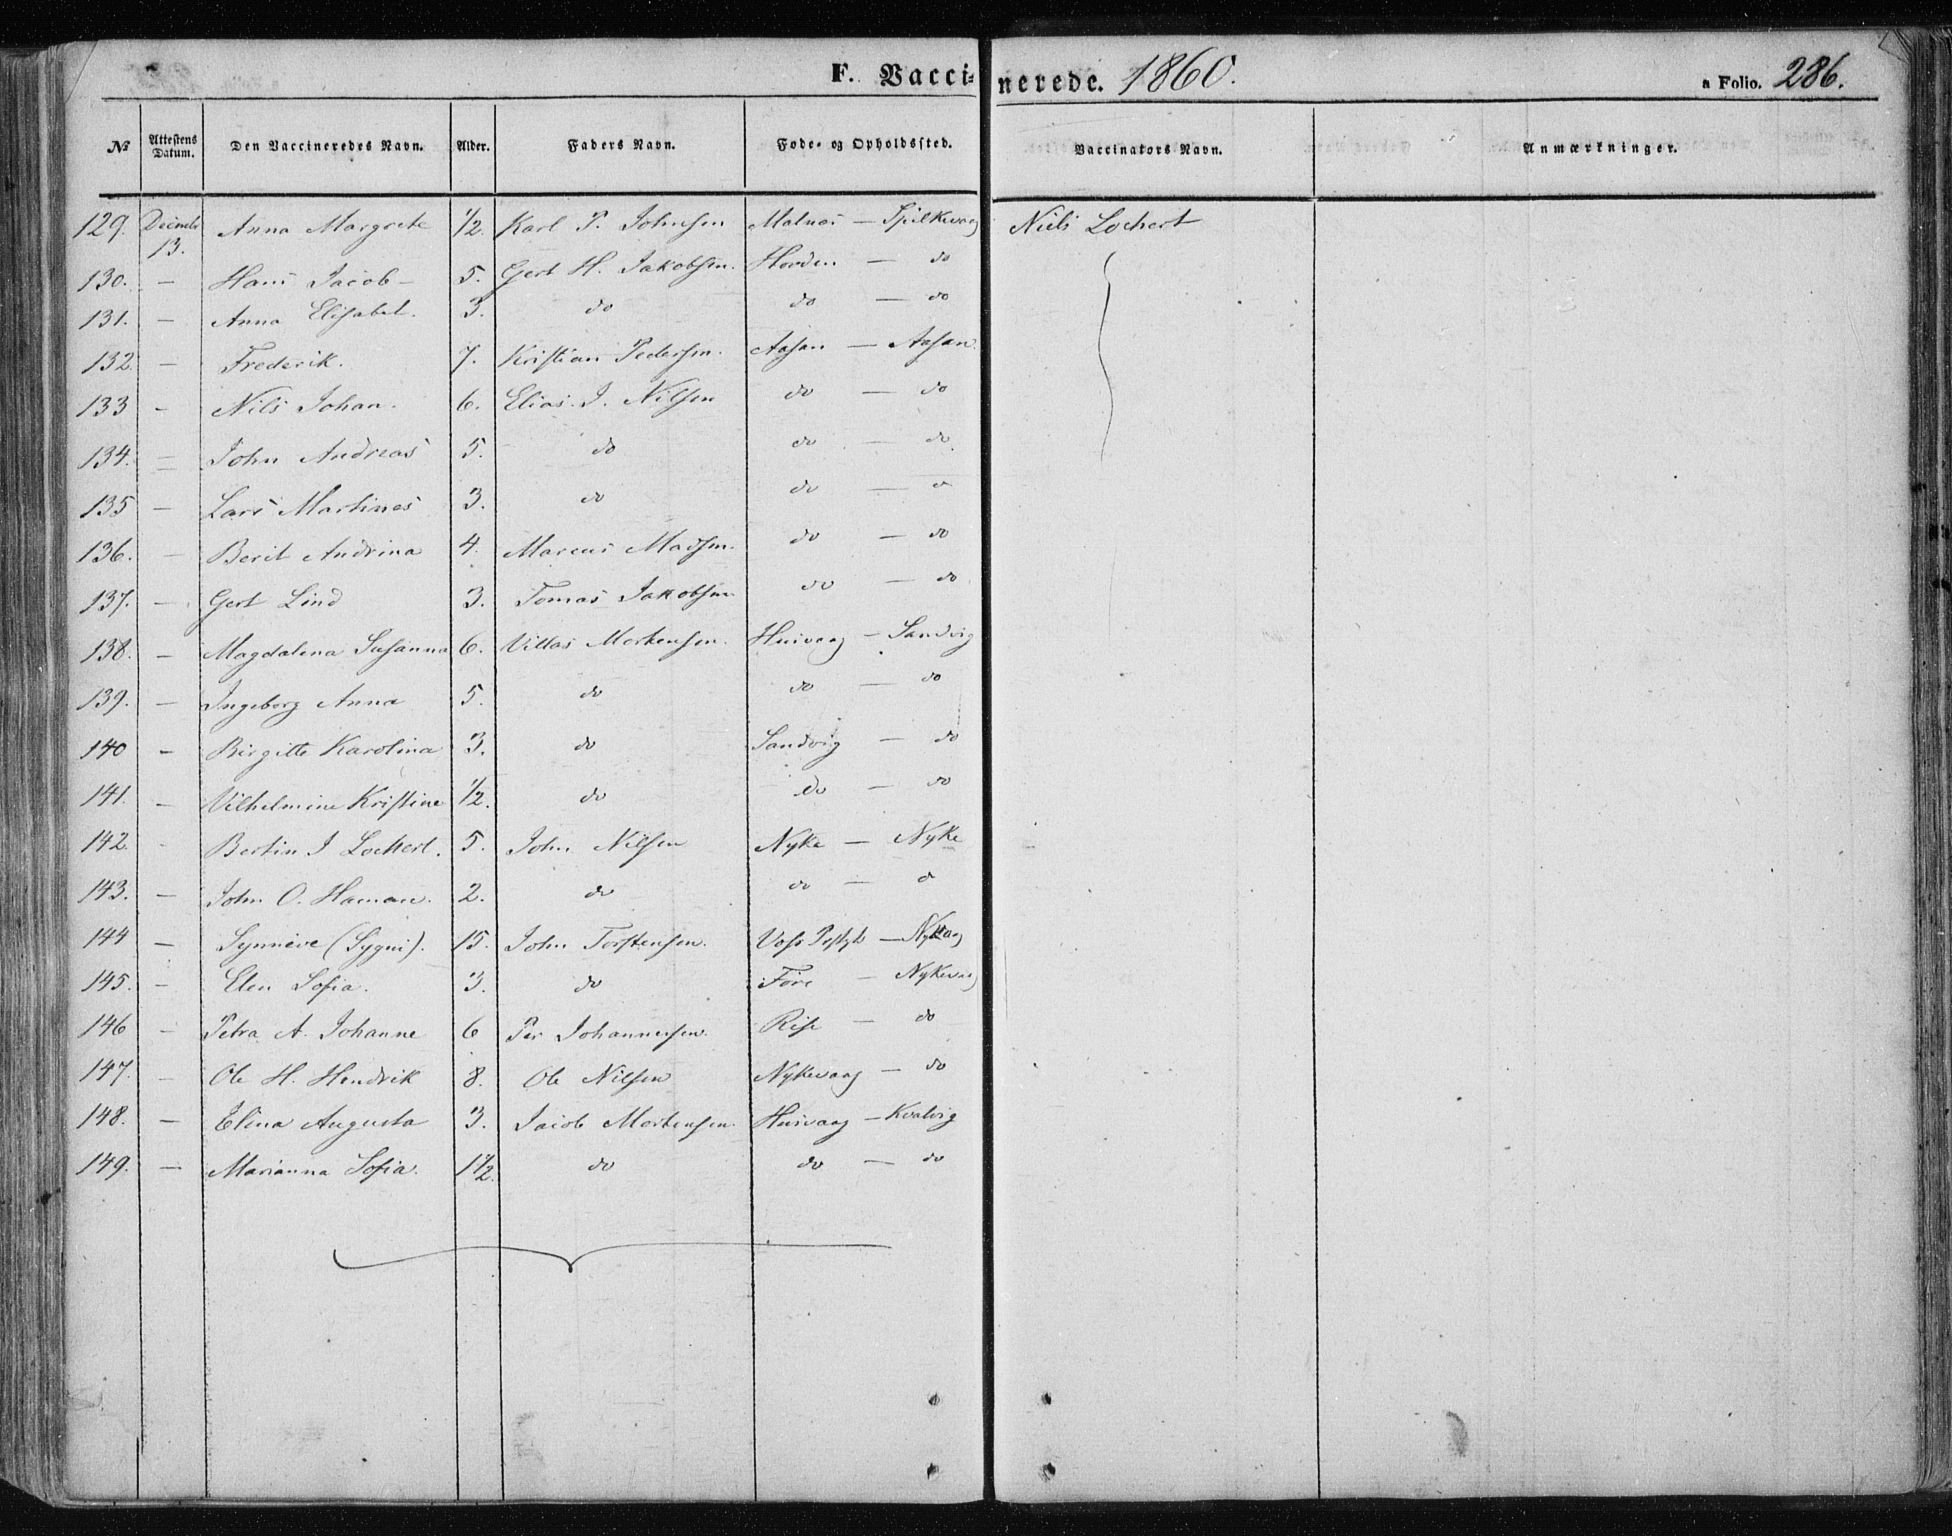 F. Vaccinerede. 1860. a Folio. 286.
№ Attestens Datum. Den Vaccineredes Navn. Alder. Faders Navn. Føde- og Opholdssted. Vaccinators Navn. Anmærkninger.
129. Decembr 13. Anna Margrete 1/2. Karl P. Johnsen Malnæs — Spilkevaag Niels Lochert
130. — Hans Jacob — 5. Gert H. Jakobsen. Hovden — do
131. — Anna Elisabet. 3. do do — do
132. — Frederik. 7. Kristian Pedersen. Aasan — Aasan
133 - Nils Johan. 6. Elias J. Nilsen do — do
134. = John Andreas 5. do do — do.
135 — Lars Martines 3. do do — do
136. — Berit Andrina 4. Marcus Madsen. do — do
137. — Gert Lind 3. Tomas Jakobsen do — do
138. — Magdalena Susanna 6. Villas Mortensen. Husvaag — Sandvig
139. — Ingeborg Anna 5. do do — do
140 — Birgitte Karolina 3. do Sandvig — do
141. — Vilhelmine Kristine 1/2. do do — do
142. - Bertin J Lochert. 5. John Nilsen Nyke — Nyke
143. — John O. Haman. 2. do do — do
144 — Synneve (Sygni). 15. John Torstensen. Voss Præstgk — Nykvaag
145. — Elen Sofia. 3. do Føre — Nykevaag
146 — Petra A. Johanne 6 Per Johannessen. Rise — do
147. — Ole H. Hendrik 8. Ole Nilsen Nykevaag — do
148. — Elena Augusta 3. Jacob Mortensen. Husvaag — Kvalvig
149. — Marianna Sofia. 1 1/2. do do — do